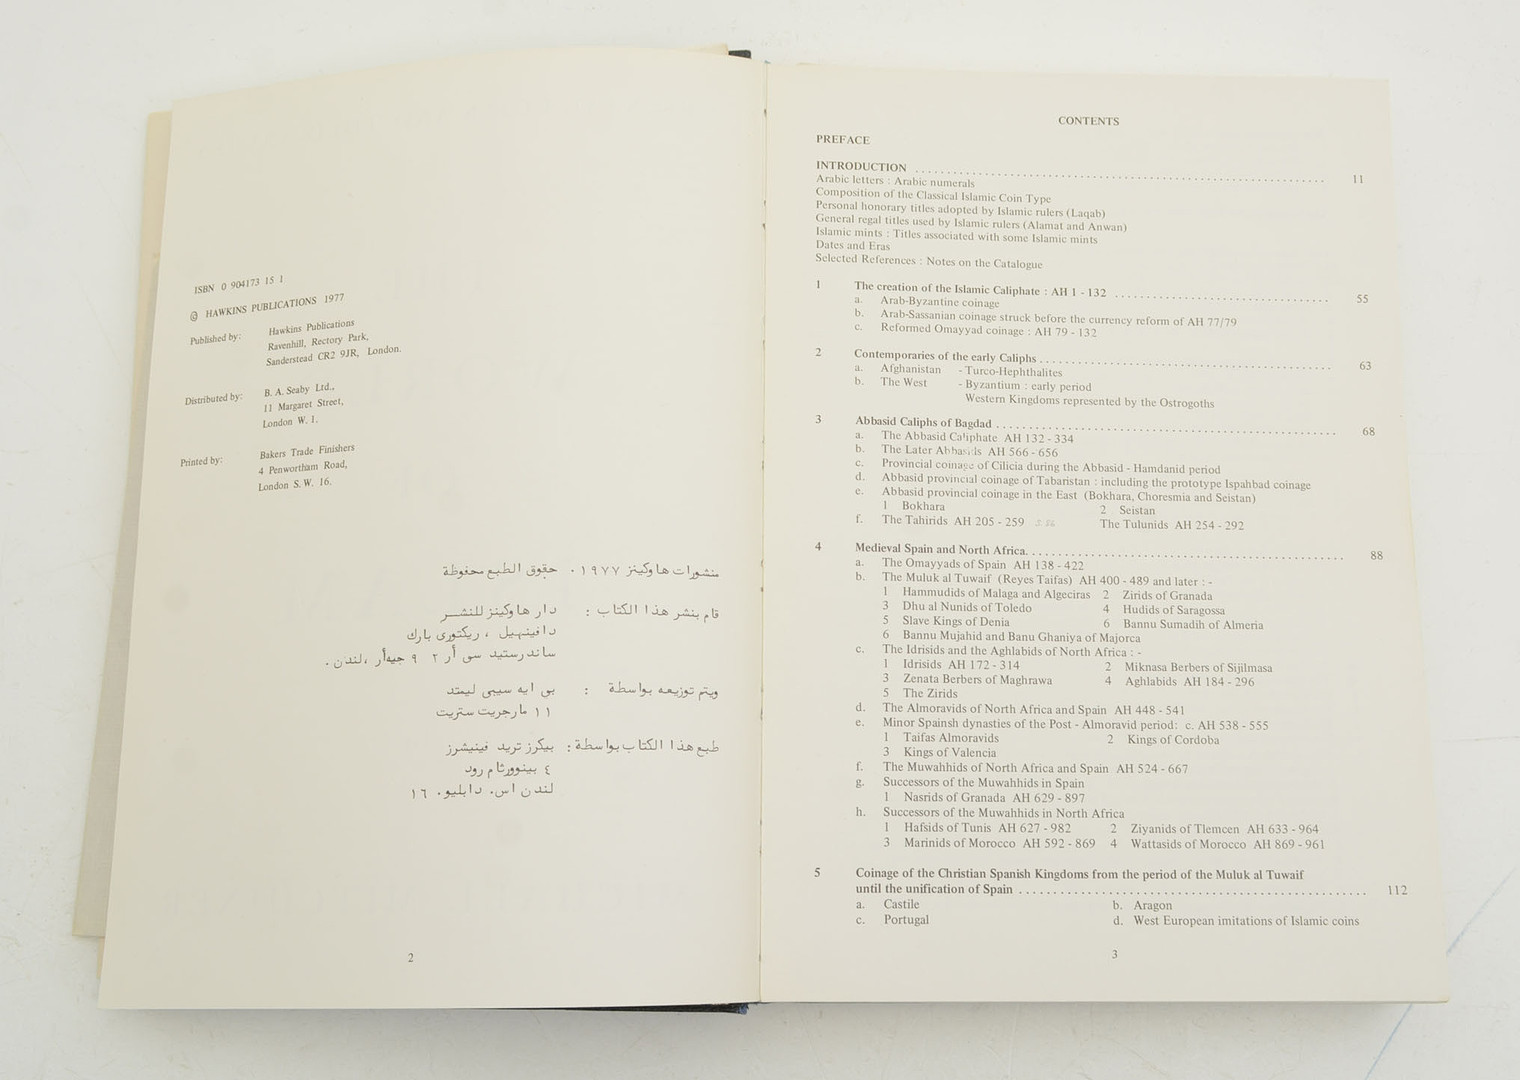 ISBN 0 904173 15 1
© HAWKINS PUBLICATIONS 1977
Published by: Hawkins Publications
Ravenhill, Rectory Park,
Sanderstead CR2 9JR, London.
Distributed by: B. A. Seaby Ltd.,
11 Margaret Street,
London W. 1.
Printed by: Bakers Trade Finishers
4 Penwortham Road,
London S. W. 16.
منشورات هاوكينز ١٩٧٧ . حقوق الطبع محفوظة
قام بنشر هذا الكتاب : دار هاوكينز للنشر
دافينهيل ، ريكتورى بارك
ساندرستيد سى أر ٢ ٩ جيهأر ،لندن .
ويتم توزيعه بواسطة : بى ايه سيبى ليمتد
١١ مارجريت ستريت
طبع هذا الكتاب بواسطة: بيكرز تريد فينيشرز
٤ بينوورثام رود
لندن اس. دابليو. ١٦
2
CONTENTS
PREFACE
INTRODUCTION 11
Arabic letters : Arabic numerals
Composition of the Classical Islamic Coin Type
Personal honorary titles adopted by Islamic rulers (Laqab)
General regal titles used by Islamic rulers (Alamat and Anwan)
Islamic mints : Titles associated with some Islamic mints
Dates and Eras
Selected References : Notes on the Catalogue
1 The creation of the Islamic Caliphate : AH 1 - 132 55
a. Arab-Byzantine coinage
b. Arab-Sassanian coinage struck before the currency reform of AH 77/79
c. Reformed Omayyad coinage : AH 79 - 132
2 Contemporaries of the early Caliphs 63
a. Afghanistan - Turco-Hephthalites
b. The West - Byzantium : early period
Western Kingdoms represented by the Ostrogoths
3 Abbasid Caliphs of Bagdad 68
a. The Abbasid Caliphate AH 132 - 334
b. The Later Abbasids AH 566 - 656
c. Provincial coinage of Cilicia during the Abbasid - Hamdanid period
d. Abbasid provincial coinage of Tabaristan : including the prototype Ispahbad coinage
e. Abbasid provincial coinage in the East (Bokhara, Choresmia and Seistan)
1 Bokhara 2 Seistan
f. The Tahirids AH 205 - 259 The Tulunids AH 254 - 292
4 Medieval Spain and North Africa. 88
a. The Omayyads of Spain AH 138 - 422
b. The Muluk al Tuwaif (Reyes Taifas) AH 400 - 489 and later : -
1 Hammudids of Malaga and Algeciras 2 Zirids of Granada
3 Dhu al Nunids of Toledo 4 Hudids of Saragossa
5 Slave Kings of Denia 6 Bannu Sumadih of Almeria
6 Bannu Mujahid and Banu Ghaniya of Majorca
c. The Idrisids and the Aghlabids of North Africa : -
1 Idrisids AH 172 - 314 2 Miknasa Berbers of Sijilmasa
3 Zenata Berbers of Maghrawa 4 Aghlabids AH 184 - 296
5 The Zirids
d. The Almoravids of North Africa and Spain AH 448 - 541
e. Minor Spainsh dynasties of the Post - Almoravid period: c. AH 538 - 555
1 Taifas Almoravids 2 Kings of Cordoba
3 Kings of Valencia
f. The Muwahhids of North Africa and Spain AH 524 - 667
g. Successors of the Muwahhids in Spain
1 Nasrids of Granada AH 629 - 897
h. Successors of the Muwahhids in North Africa
1 Hafsids of Tunis AH 627 - 982 2 Ziyanids of Tlemcen AH 633 - 964
3 Marinids of Morocco AH 592 - 869 4 Wattasids of Morocco AH 869 - 961
5 Coinage of the Christian Spanish Kingdoms from the period of the Muluk al Tuwaif
until the unification of Spain 112
a. Castile b. Aragon
c. Portugal d. West European imitations of Islamic coins
3